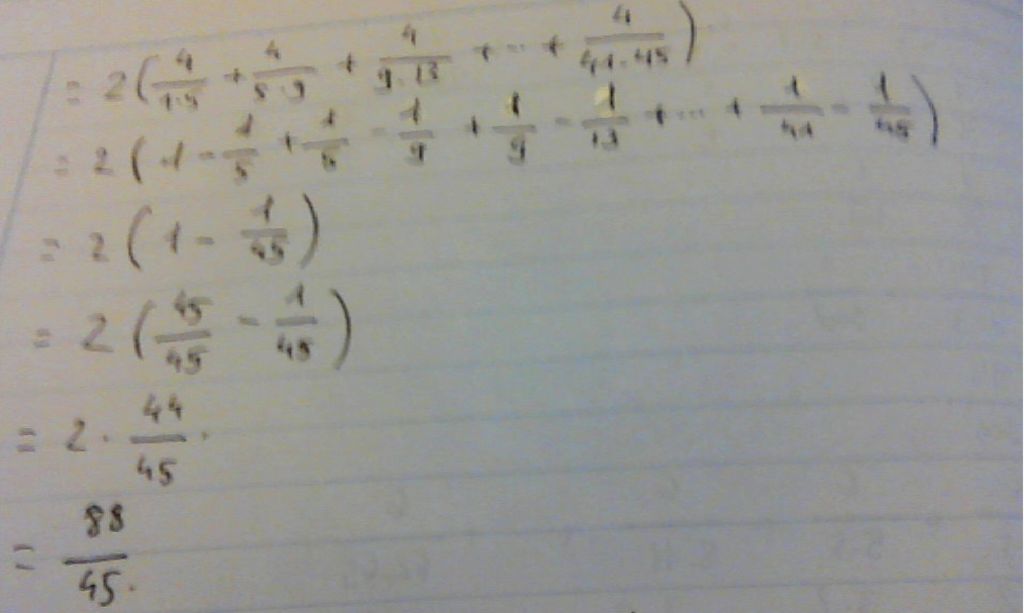 = 2 ( 4/1·5 + 4/5·9 + 4/9·13 + ... + 4/41·45 )
= 2 ( 1 - 1/5 + 1/5 - 1/9 + 1/9 - 1/13 + ... + 1/41 - 1/45 )
= 2 ( 1 - 1/45 )
= 2 ( 45/45 - 1/45 )
= 2 · 44/45 .
= 88/45 .